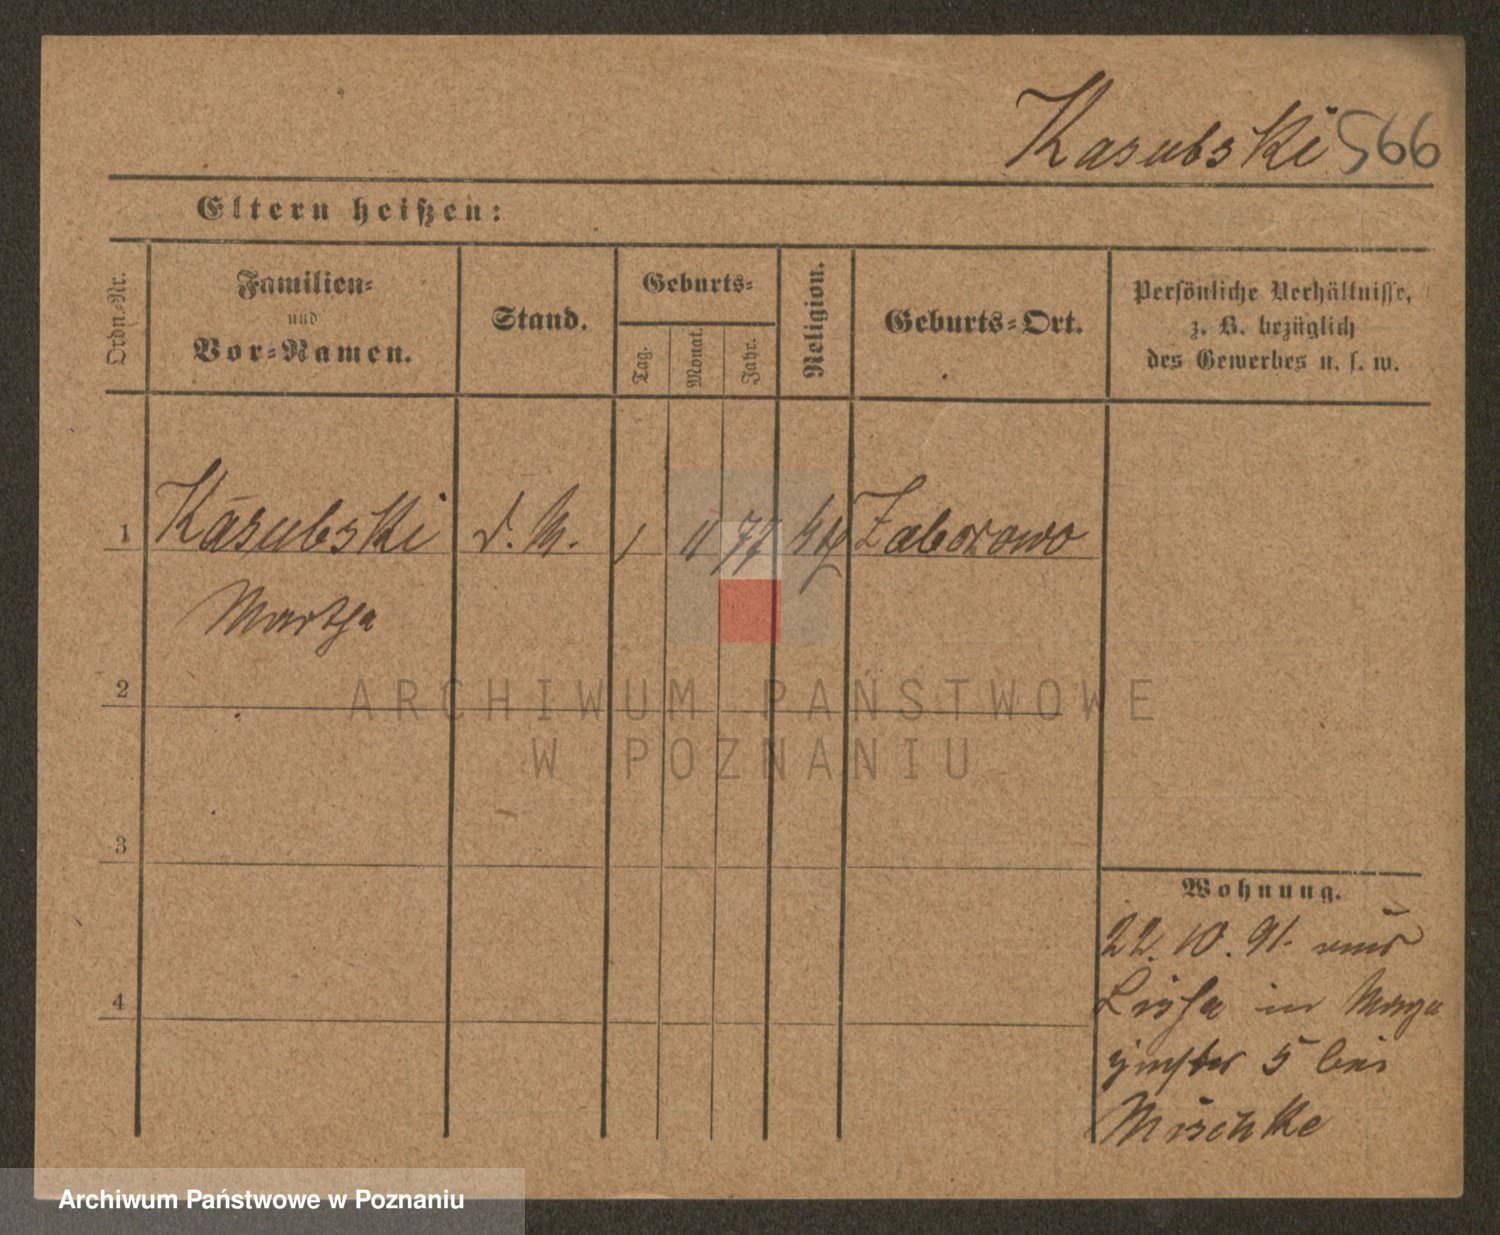 Kasubski 566
Eltern heißen:
Ordn-Nr.
Familien-
und
Vor-Namen.
Stand.
Geburts-
Tag.
Monat.
Jahr.
Religion.
Geburts-Ort.
Persönliche Verhältnisse,
z. B. bezüglich
des Gewerbes u. s. w.
1 Kasubski d. M. 1 11 77 kth Zaborowo
Martha
2
ARCHIWUM PAŃSTWOWE
W POZNANIU
3
Wohnung.
22. 10. 91. aus
Lissa in
4
5 bei
Mischke
Archiwum Państwowe w Poznaniu